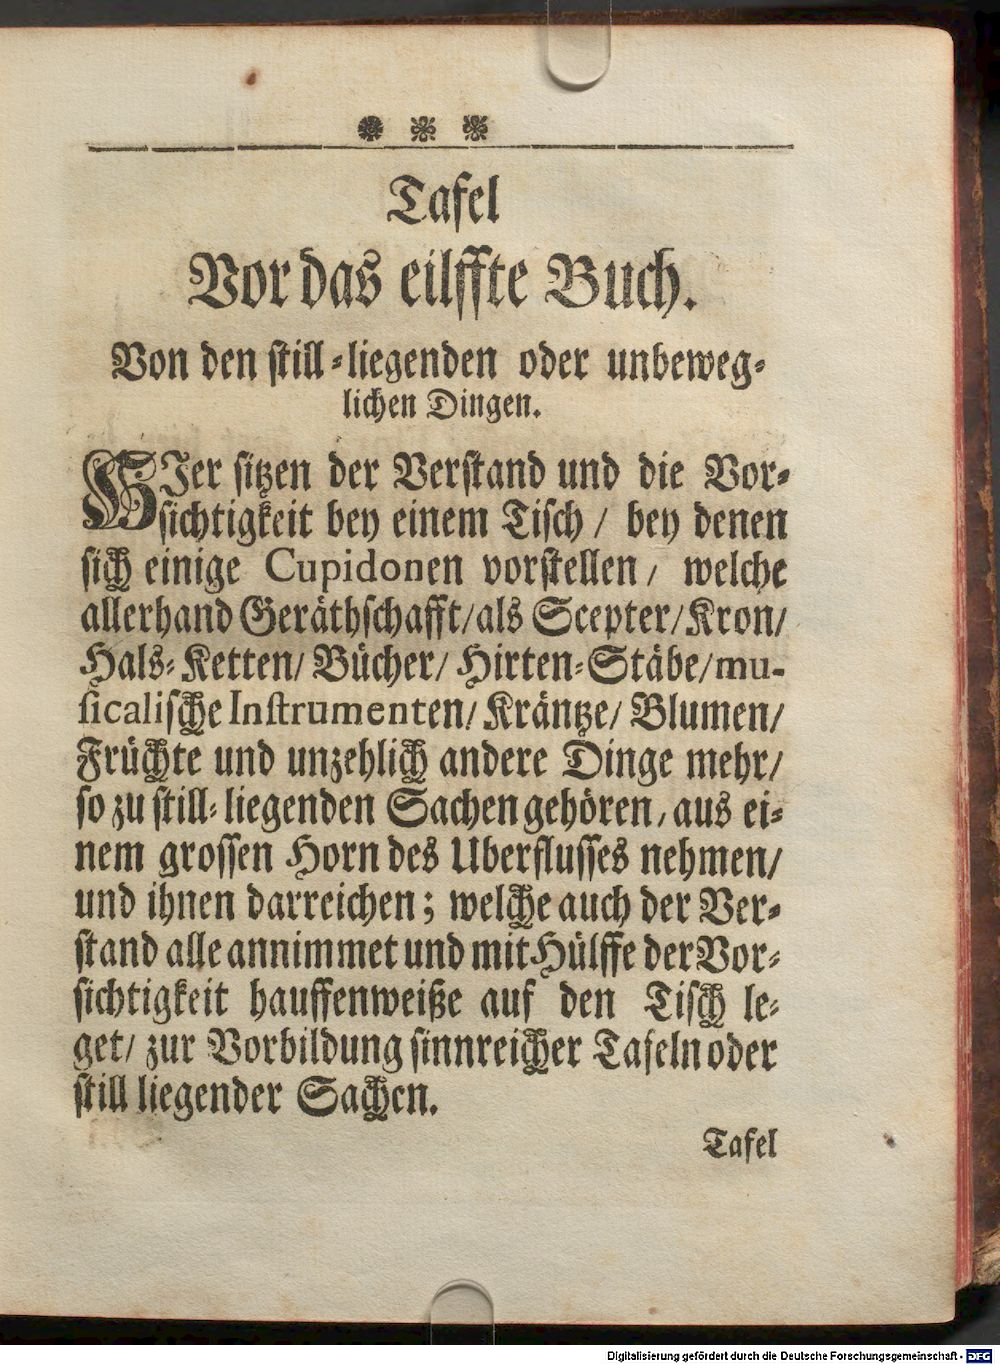 Tafel
Vor das eilffte Buch.
Von den still-liegenden oder unbeweg-
lichen Dingen.
HJer sitzen der Verstand und die Vor-
sichtigkeit bey einem Tisch / bey denen
sich einige Cupidonen vorstellen / welche
allerhand Geräthschafft/als Scepter/Kron/
Hals-Ketten/ Bücher/ Hirten-Stäbe/mu-
sicalische Instrumenten/ Kräntze/ Blumen/
Früchte und unzehlich andere Dinge mehr/
so zu still-liegenden Sachen gehören, aus ei-
nem grossen Horn des Uberflusses nehmen/
und ihnen darreichen; welche auch der Ver-
stand alle annimmet und mit Hülffe der Vor-
sichtigkeit hauffenweiße auf den Tisch le-
get/ zur Vorbildung sinnreicher Tafeln oder
still liegender Sachen.
Tafel
Digitalisierung gefördert durch die Deutsche Forschungsgemeinschaft - DFG